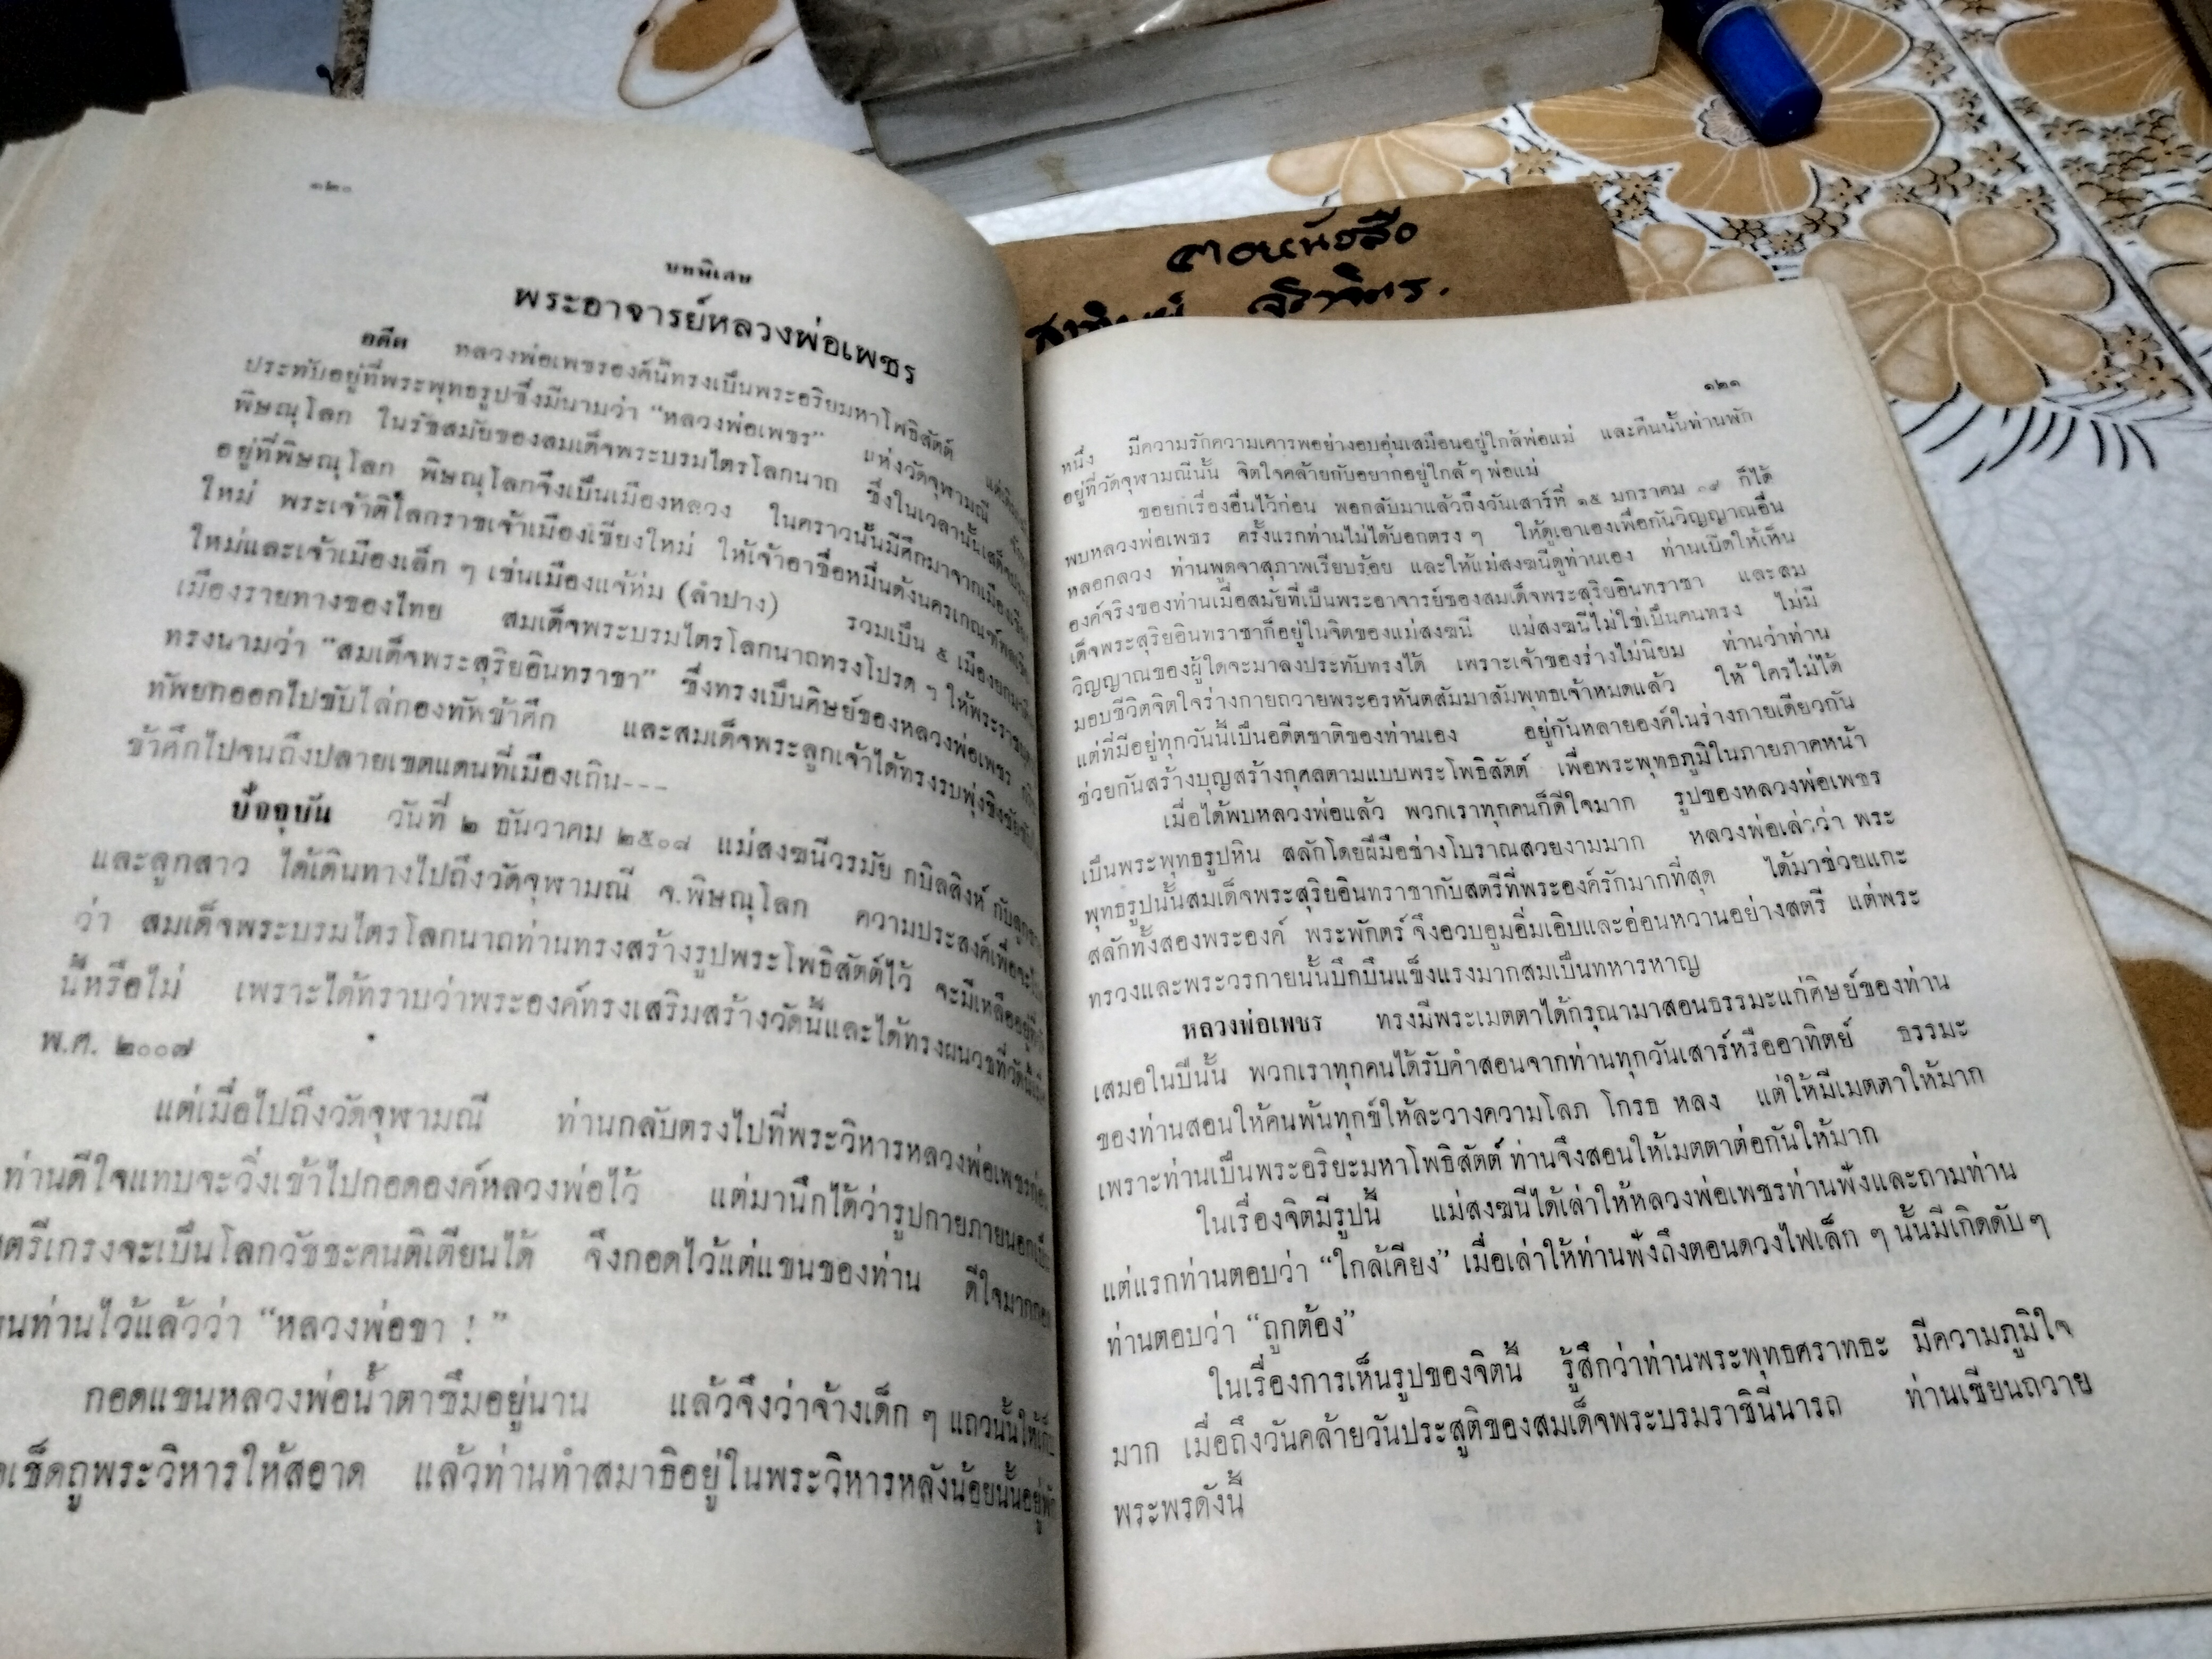 ๑๒๐
บทพิเศษ
พระอาจารย์หลวงพ่อเพชร
อดีต หลวงพ่อเพชรองค์นี้ทรงเป็นพระอริยมหาโพธิสัตต์
ประทับอยู่ที่พระพุทธรูปซึ่งมีนามว่า “หลวงพ่อเพชร” แห่งวัดจุฬามณี
พิษณุโลก ในรัชสมัยของสมเด็จพระบรมไตรโลกนาถ ซึ่งในเวลานั้น
อยู่ที่พิษณุโลก พิษณุโลกจึงเป็นเมืองหลวง ในคราวนั้นมีศึกมาจากเมือง
ใหม่ พระเจ้าติโลกราชเจ้าเมืองเชียงใหม่ ให้เจ้าอาชื่อหมื่นด้งนคร
ใหม่และเจ้าเมืองเล็ก ๆ เช่นเมืองแจ้ห่ม (ลำปาง) รวมเป็น ๕ เมือง
เมืองรายทางของไทย สมเด็จพระบรมไตรโลกนาถทรงโปรด ๆ ให้
ทรงนามว่า “สมเด็จพระสุริยอินทราชา” ซึ่งทรงเป็นศิษย์ของหลวงพ่อเพชร
ทัพยกออกไปขับไล่กองทัพข้าศึก และสมเด็จพระลูกเจ้าได้ทรงรบพุ่ง
ข้าศึกไปจนถึงปลายเขตแดนที่เมืองเถิน---
ปัจจุบัน วันที่ ๒ ธันวาคม ๒๕๐๘ แม่สงฆนีวรมัย กบิลสิงห์
และลูกสาว ได้เดินทางไปถึงวัดจุฬามณี จ.พิษณุโลก ความประสงค์
ว่า สมเด็จพระบรมไตรโลกนาถท่านทรงสร้างรูปพระโพธิสัตต์ไว้ จะมีเหลือ
นี้หรือไม่ เพราะได้ทราบว่าพระองค์ทรงเสริมสร้างวัดนี้และได้ทรงผนวช
พ.ศ. ๒๐๐๗
แต่เมื่อไปถึงวัดจุฬามณี ท่านกลับตรงไปที่พระวิหารหลวงพ่อเพชร
ท่านดีใจแทบจะวิ่งเข้าไปกอดองค์หลวงพ่อไว้ แต่มานึกได้ว่ารูปกายภายนอก
ตรีเกรงจะเป็นโลกวัชชะคนติเตียนได้ จึงกอดไว้แต่แขนของท่าน ดีใจมาก
ท่านไว้แล้วว่า “หลวงพ่อขา ! ”
กอดแขนหลวงพ่อน้ำตาซึมอยู่นาน แล้วจึงว่าจ้างเด็ก ๆ แถวนั้นให้
เช็ดถูพระวิหารให้สอาด แล้วท่านทำสมาธิอยู่ในพระวิหารหลังน้อยนั้น
๑๒๑
หนึ่ง มีความรักความเคารพอย่างอบอุ่นเสมือนอยู่ใกล้พ่อแม่ และคืนนั้นท่านพัก
อยู่ที่วัดจุฬามณีนั้น จิตใจคล้ายกับอยากอยู่ใกล้ ๆ พ่อแม่
ขอยกเรื่องอื่นไว้ก่อน พอกลับมาแล้วถึงวันเสาร์ที่ ๑๕ มกราคม ๐๙ ก็ได้
พบหลวงพ่อเพชร ครั้งแรกท่านไม่ได้บอกตรง ๆ ให้ดูเอาเองเพื่อกันวิญญาณอื่น
หลอกลวง ท่านพูดจาสุภาพเรียบร้อย และให้แม่สงฆนีดูท่านเอง ท่านเปิดให้เห็น
องค์จริงของท่านเมื่อสมัยที่เป็นพระอาจารย์ของสมเด็จพระสุริยอินทราชา และสม
เด็จพระสุริยอินทราชาก็อยู่ในจิตของแม่สงฆนี แม่สงฆนีไม่ใช่เป็นคนทรง ไม่มี
วิญญาณของผู้ใดจะมาลงประทับทรงได้ เพราะเจ้าของร่างไม่นิยม ท่านว่าท่าน
มอบชีวิตจิตใจร่างกายถวายพระอรหันตสัมมาสัมพุทธเจ้าหมดแล้ว ให้ ใครไม่ได้
แต่ที่มีอยู่ทุกวันนี้เป็นอดีตชาติของท่านเอง อยู่กันหลายองค์ในร่างกายเดียวกัน
ช่วยกันสร้างบุญสร้างกุศลตามแบบพระโพธิสัตต์ เพื่อพระพุทธภูมิในภายภาคหน้า
เมื่อได้พบหลวงพ่อแล้ว พวกเราทุกคนก็ดีใจมาก รูปของหลวงพ่อเพชร
เป็นพระพุทธรูปหิน สลักโดยฝีมือช่างโบราณสวยงามมาก หลวงพ่อเล่าว่า พระ
พุทธรูปนั้นสมเด็จพระสุริยอินทราชากับสตรีที่พระองค์รักมากที่สุด ได้มาช่วยแกะ
สลักทั้งสองพระองค์ พระพักตร์จึงอวบอูมอิ่มเอิบและอ่อนหวานอย่างสตรี แต่พระ
ทรวงและพระวรกายนั้นบึกบึนแข็งแรงมากสมเป็นทหารหาญ
หลวงพ่อเพชร ทรงมีพระเมตตาได้กรุณามาสอนธรรมะแก่ศิษย์ของท่าน
เสมอในปีนั้น พวกเราทุกคนได้รับคำสอนจากท่านทุกวันเสาร์หรืออาทิตย์ ธรรมะ
ของท่านสอนให้คนพ้นทุกข์ให้ละวางความโลภ โกรธ หลง แต่ให้มีเมตตาให้มาก
เพราะท่านเป็นพระอริยะมหาโพธิสัตต์ ท่านจึงสอนให้เมตตาต่อกันให้มาก
ในเรื่องจิตมีรูปนี้ แม่สงฆนีได้เล่าให้หลวงพ่อเพชรท่านฟังและถามท่าน
แต่แรกท่านตอบว่า “ใกล้เคียง” เมื่อเล่าให้ท่านฟังถึงตอนดวงไฟเล็ก ๆ นั้นมีเกิดดับ ๆ
ท่านตอบว่า “ถูกต้อง”
ในเรื่องการเห็นรูปของจิตนี้ รู้สึกว่าท่านพระพุทธศราทธะ มีความภูมิใจ
มาก เมื่อถึงวันคล้ายวันประสูติของสมเด็จพระบรมราชินีนารถ ท่านเขียนถวาย
พระพรดังนี้